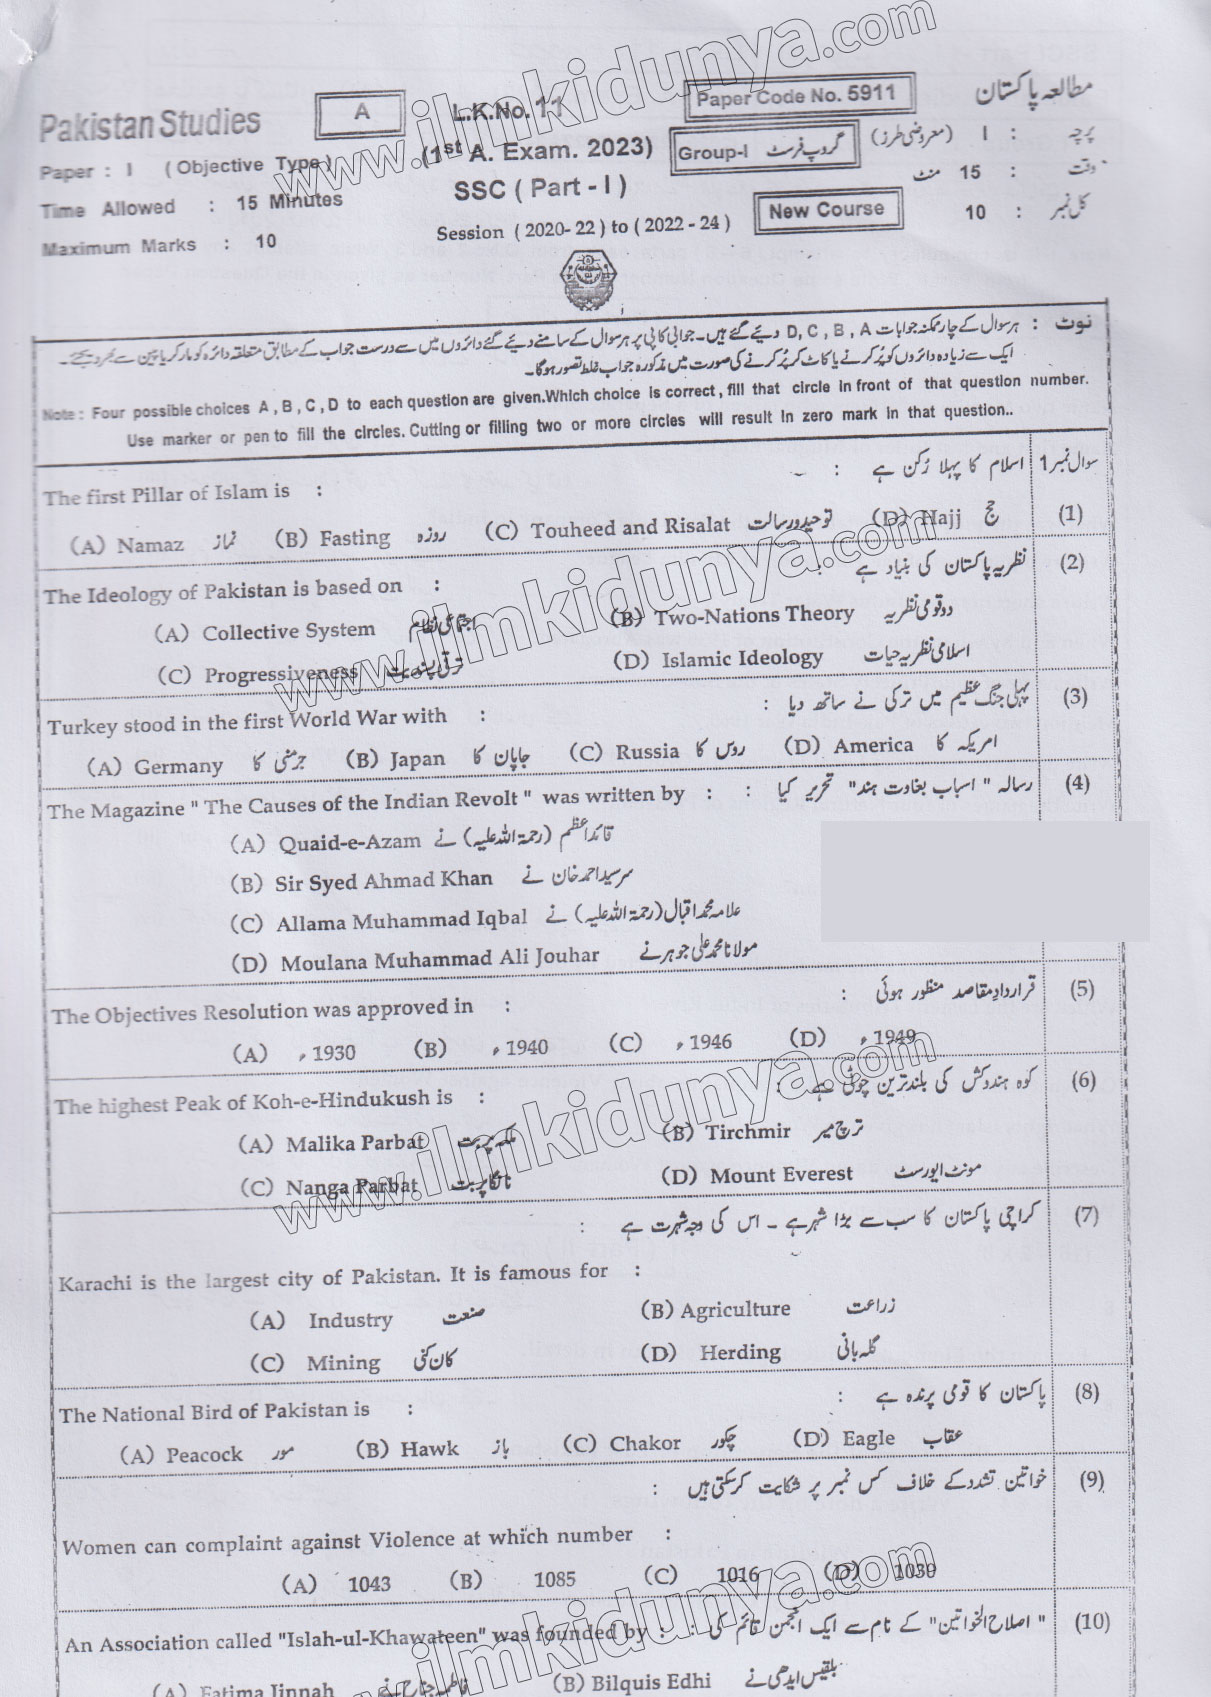 Pakistan Studies
A
L.K.No. 11
Paper Code No. 5911
مطالعہ پاکستان
Paper : I ( Objective Type )
(1st A. Exam. 2023)
Group-I گروپ فرسٹ
پرچہ : I (معروضی طرز)
Time Allowed : 15 Minutes
SSC ( Part - I )
وقت : 15 منٹ
Maximum Marks : 10
Session ( 2020- 22 ) to ( 2022 - 24 )
New Course
کل نمبر : 10
نوٹ : ہر سوال کے چار ممکنہ جوابات D , C , B , A دیئے گئے ہیں۔ جوابی کاپی پر ہر سوال کے سامنے دیئے گئے دائروں میں سے درست جواب کے مطابق متعلقہ دائرہ کو مارکر یا پین سے بھر دیجئے۔
ایک سے زیادہ دائروں کو پُر کرنے یا کاٹ کر پُر کرنے کی صورت میں مذکورہ جواب غلط تصور ہوگا۔
Note : Four possible choices A , B , C , D to each question are given.Which choice is correct , fill that circle in front of that question number.
Use marker or pen to fill the circles. Cutting or filling two or more circles will result in zero mark in that question..
سوال نمبر 1 اسلام کا پہلا رُکن ہے :
The first Pillar of Islam is :
(1)
(A) Namaz نماز (B) Fasting روزہ (C) Touheed and Risalat توحید و رسالت (D) Hajj حج
(2) نظریہ پاکستان کی بنیاد ہے :
The Ideology of Pakistan is based on :
(A) Collective System اجتماعی نظام (B) Two-Nations Theory دو قومی نظریہ
(C) Progressiveness ترقی پسندیت (D) Islamic Ideology اسلامی نظریہ حیات
(3) پہلی جنگ عظیم میں ترکی نے ساتھ دیا :
Turkey stood in the first World War with :
(A) Germany جرمنی کا (B) Japan جاپان کا (C) Russia روس کا (D) America امریکہ کا
(4) رسالہ " اسباب بغاوت ہند" تحریر کیا :
The Magazine " The Causes of the Indian Revolt " was written by :
(A) Quaid-e-Azam قائداعظم (رحمۃ اللہ علیہ) نے
(B) Sir Syed Ahmad Khan سر سید احمد خان نے
(C) Allama Muhammad Iqbal علامہ محمد اقبال (رحمۃ اللہ علیہ) نے
(D) Moulana Muhammad Ali Jouhar مولانا محمد علی جوہر نے
(5) قراردادِ مقاصد منظور ہوئی :
The Objectives Resolution was approved in :
(A) 1930ء (B) 1940ء (C) 1946ء (D) 1949ء
(6) کوہ ہندوکش کی بلند ترین چوٹی ہے :
The highest Peak of Koh-e-Hindukush is :
(A) Malika Parbat ملکہ پربت (B) Tirchmir ترچ میر
(C) Nanga Parbat نانگا پربت (D) Mount Everest مونٹ ایورسٹ
(7) کراچی پاکستان کا سب سے بڑا شہر ہے ۔ اس کی وجہ شہرت ہے :
Karachi is the largest city of Pakistan. It is famous for :
(A) Industry صنعت (B) Agriculture زراعت
(C) Mining کان کنی (D) Herding گلہ بانی
(8) پاکستان کا قومی پرندہ ہے :
The National Bird of Pakistan is :
(A) Peacock مور (B) Hawk باز (C) Chakor چکور (D) Eagle عقاب
(9) خواتین تشدد کے خلاف کس نمبر پر شکایت کر سکتی ہیں :
Women can complaint against Violence at which number :
(A) 1043 (B) 1085 (C) 1016 (D) 1030
(10) " اصلاح الخواتین" کے نام سے ایک انجمن قائم کی :
An Association called "Islah-ul-Khawateen" was founded by :
(A) Fatima Jinnah فاطمہ جناح نے (B) Bilquis Edhi بلقیس ایدھی نے
www.ilmkidunya.com
www.ilmkidunya.com
www.ilmkidunya.com
www.ilmkidunya.com